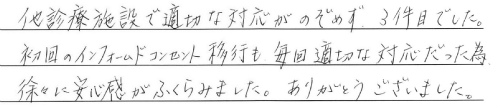 他診療施設で適切な対応がのぞめず、3件目でした。
初回のインフォームドコンセント移行も毎回適切な対応だった為
徐々に安心感がふくらみました。ありがとうございました。